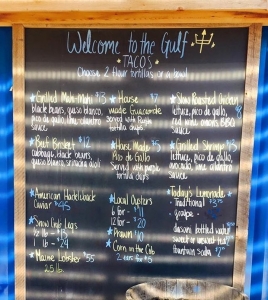 Welcome to the Gulf
*TACOS*
Choose 2 flour tortillas or a bowl
*Grilled Mahi-Mahi $13
black beans, queso blanco,
pico de gallo, lime cilantro
sauce
*Beef Brisket $12
cabbage, black beans,
queso blanco, sriracha aioli
*American Hackleback
Caviar $45
*Snow Crab Legs
1/2 lb - $
1 lb - $24
*Maine Lobster $55
2.5 lb.
*House $7
made Guacamole
served with
tortilla chips
*House Made $5
Pico de Gallo
served with
tortilla chips
*Local Oysters
6 for - $11
12 for - $20
*Prawn $10
*Corn on the Cob
2 ears for $5
*Slow Roasted Chicken
lettuce, pico de gallo,
BBQ
sauce
*Grilled Shrimp $13
lettuce, pico de gallo,
avocado, lime cilantro
sauce
*Today's Lemonade
- Traditional $3.75
- grape
bottled water $3
sweet or unsweet tea
fountain soda $2